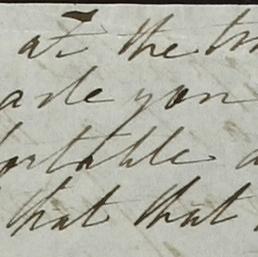 at the
made you
fortable
that that